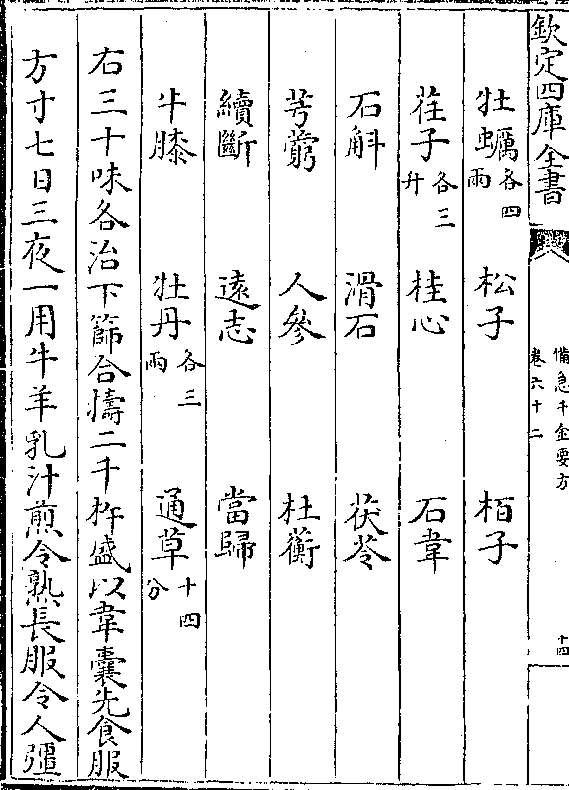 欽定四庫全書
備急千金要方
卷六十二
十四
牡蠣各四兩 松子 栢子
荏子各三升 桂心 石韋
石斛 滑石 茯苓
芎藭 人參 杜蘅
續斷 遠志 當歸
牛膝 牡丹各三兩 通草十四分
右三十味各治下篩合擣二千杵盛以韋囊先食服
方寸七日三夜一用牛羊乳汁煎令熟長服令人彊